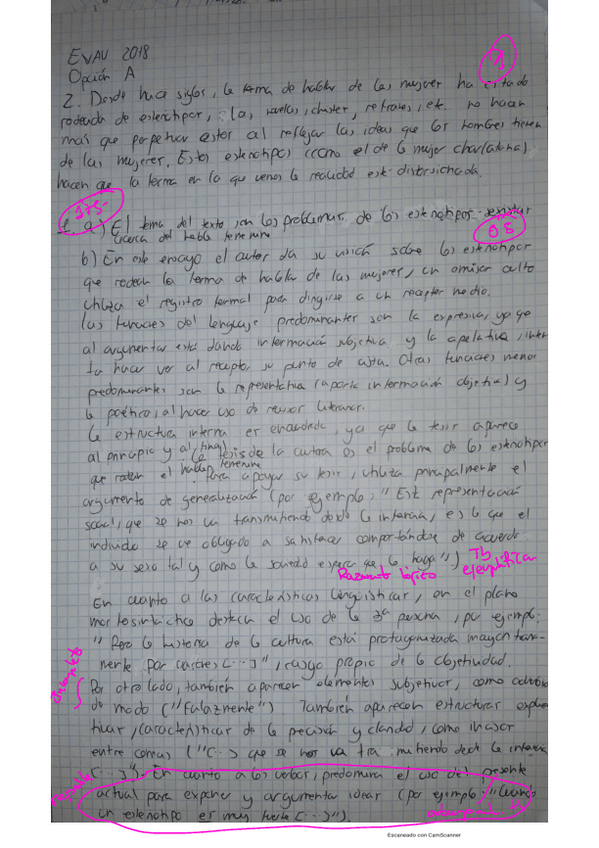 EVAU 2018
Opción A
2. Desde hace siglos, la forma de hablar de las mujeres ha estado
rodeada de estereotipos, las novelas, chistes, refranes, etc. no hacen
más que perpetuar estos al reflejar las ideas que los hombres tienen
de las mujeres. Estos estereotipos (como el de la mujer charlatana)
hacen que la forma en la que vemos la realidad esté distorsionada.
1. a) El tema del texto son los problemas de los estereotipos
acerca del habla femenina
0'5
b) En este ensayo el autor da su visión sobre los estereotipos
que rodean la forma de hablar de las mujeres, un emisor culto
utiliza el registro formal para dirigirse a un receptor medio.
Las funciones del lenguaje predominantes son la expresiva, ya que
al argumentar está dando información subjetiva y la apelativa, inten-
ta hacer ver al receptor su punto de vista. Otras funciones menos
predominantes son la representativa (aporta información objetiva) y
la poética, al hacer uso de recursos literarios.
La estructura interna es encuadrada, ya que la tesis aparece
al principio y al final
la tesis de la autora es el problema de los estereotipos
que rodean el habla femenina. Para apoyar su tesis, utiliza principalmente el
argumento de generalización (por ejemplo: "Esta representación
social, que se nos va transmitiendo desde la infancia, es la que el
individuo se ve obligado a satisfacer comportándose de acuerdo
a su sexo tal y como la sociedad espera que lo haga")
Tb ejemplifica
Razonamiento lógico
En cuanto a las características lingüísticas, en el plano
morfosintáctico destaca el uso de la 3ª persona, por ejemplo:
"Pero la historia de la cultura está protagonizada mayoritaria-
mente por varones [...]", rasgo propio de la objetividad
Por otro lado, también aparecen elementos subjetivos, como adverbios
de modo ("Falazmente") También aparecen estructuras explica-
tivas, características de la precisión y claridad, como incisos
entre comas ("[...] que se nos va transmitiendo desde la infancia
[...]"). En cuanto a los verbos, predomina el uso del presente
actual para exponer y argumentar ideas (por ejemplo: "Cuando
un estereotipo es muy fuerte [...]").
Escaneado con CamScanner